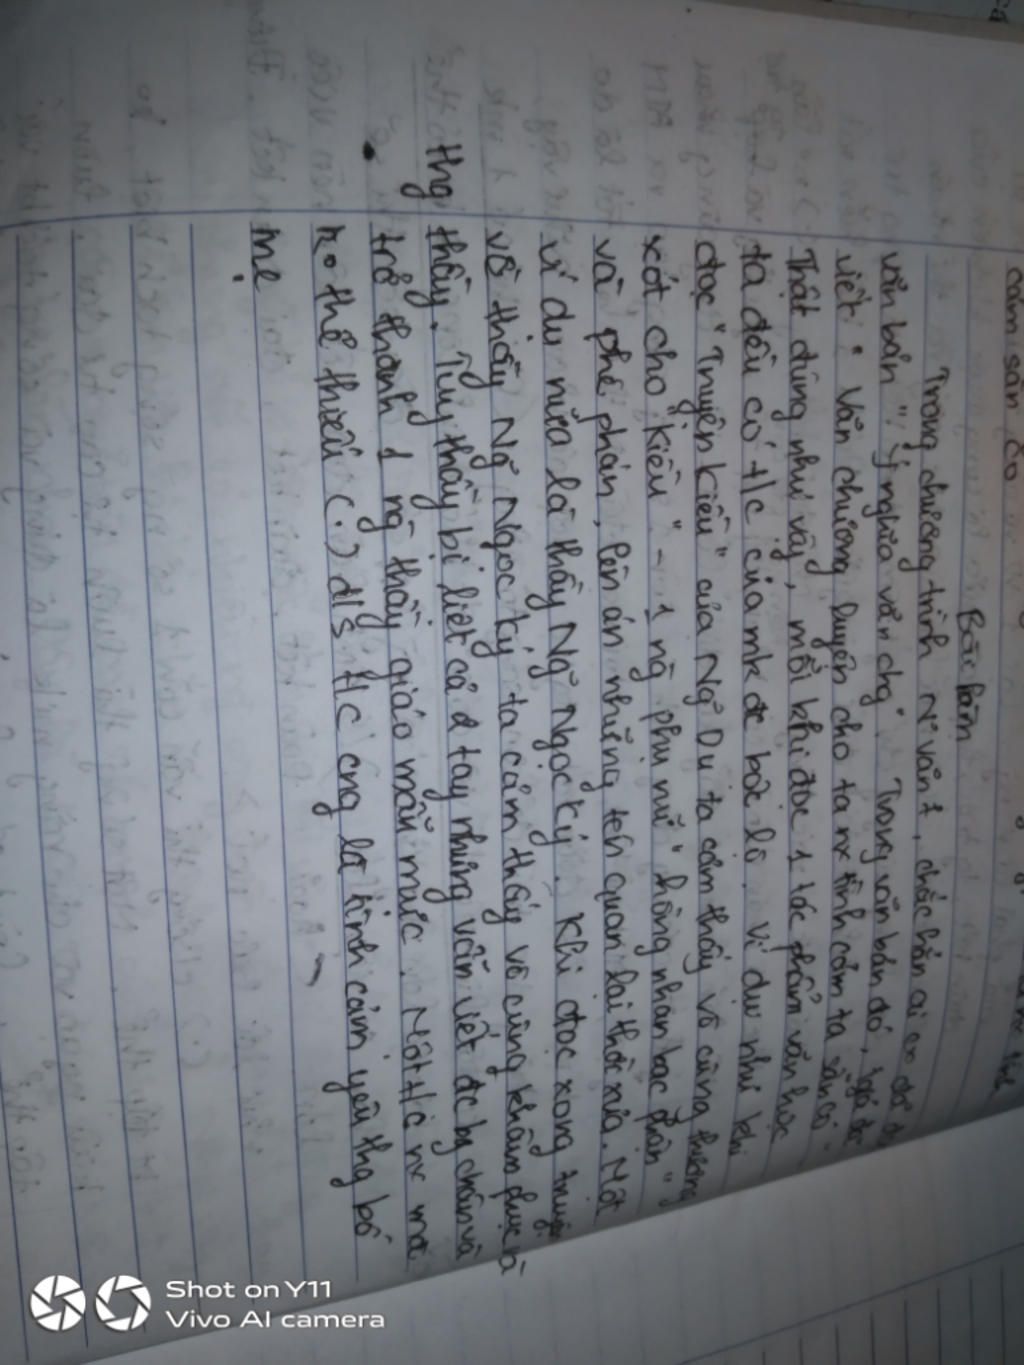 cảm sẵn có
Bài làm
Trong chương trình N~ văn 7, chắc hẳn ai cx đã đc
văn bản " ý nghĩa văn chg". Trong văn bản đó, tgiả đã
viết: " Văn chương luyện cho ta nx tình cảm ta sẵn có".
Thật đúng như vậy, mỗi khi đọc 1 tác phẩm văn học
ta đều có t/c của mk đc bộc lộ. Ví dụ như khi
đọc "Truyện Kiều" của Ng~ Du ta cảm thấy vô cùng thương
xót cho "Kiều" - 1 ng phụ nữ " hồng nhan bạc phận"
và phê phán, lên án những tên quan lại thời xưa. Một
ví dụ nữa là thầy Ng~ Ngọc Ký. Khi đọc xong truyện
về thầy Ng~ Ngọc Ký, ta cảm thấy vô cùng khâm phục và
thg thầy. Tuy thầy bị liệt cả 2 tay nhưng vẫn viết đc bg chân và
trở thành 1 ng thầy giáo mẫu mực. Một t/c nx mà
ko thể thiếu (.) đ/s t/c cng là tình cảm yêu thg bố
mẹ.
Shot on Y11
Vivo AI camera